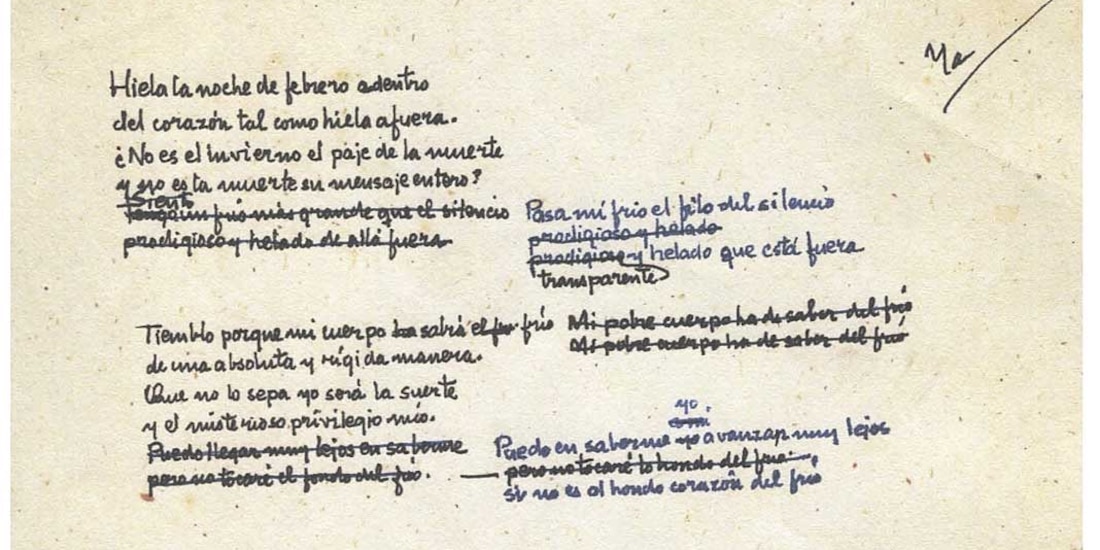 Ya
Hiela la noche de febrero adentro
del corazón tal como hiela afuera.
¿No es el invierno el paje de la muerte
y no es la muerte su mensaje entero?
Siento
Tengo un frío más grande que el silencio
prodigioso y helado de allá fuera
Pasa mi frío el filo del silencio
prodigioso y helado
prodigioso y helado que está fuera
transparente
Tiemblo porque mi cuerpo sabrá el frío
Mi pobre cuerpo ha de saber del frío
de una absoluta y rígida manera.
Mi pobre cuerpo ha de saber del frío
Que no lo sepa yo será la suerte
y el misterioso privilegio mío.
Puedo llegar muy lejos en saberme
pero no tocaré el fondo del frío.
yo
Puedo en saberme yo avanzar muy lejos
pero no tocaré lo hondo del frío
si no es al hondo corazón del frío